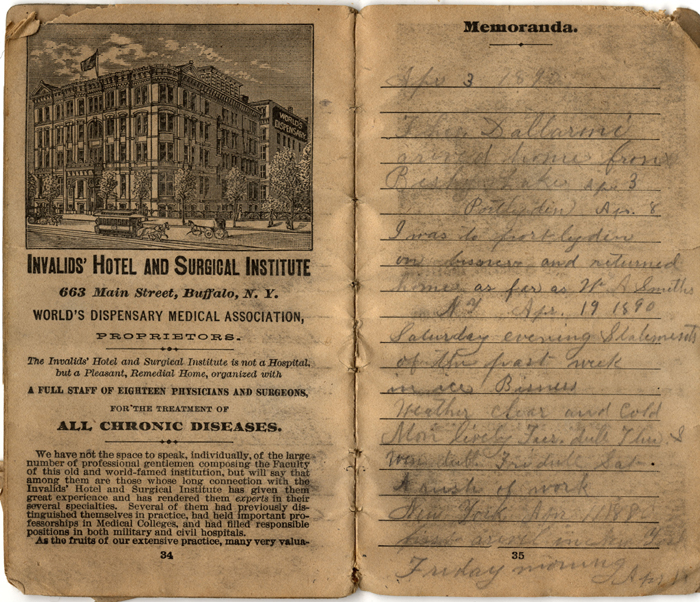 WORLD'S
DISPENSARY
INVALIDS' HOTEL AND SURGICAL INSTITUTE
663 Main Street, Buffalo, N. Y.
WORLD'S DISPENSARY MEDICAL ASSOCIATION,
PROPRIETORS.
The Invalids' Hotel and Surgical Institute is not a Hospital,
but a Pleasant, Remedial Home, organized with
A FULL STAFF OF EIGHTEEN PHYSICIANS AND SURGEONS,
FOR THE TREATMENT OF
ALL CHRONIC DISEASES.
We have not the space to speak, individually, of the large
number of professional gentlemen composing the Faculty
of this old and world-famed institution, but will say that
among them are those whose long connection with the
Invalids' Hotel and Surgical Institute has given them
great experience and has rendered them experts in their
several specialties. Several of them had previously dis-
tinguished themselves in practice, had held important pro-
fessorships in Medical Colleges, and had filled responsible
positions in both military and civil hospitals.
As the fruits of our extensive practice, many very valua-
34
Memoranda.
Apr 3 1890
arived home from
Lake Apr 3
Portlyden Apr. 8
I was to port lyden
on and returned
home as far as W A Smiths
N.Y Apr. 19 1890
Saturday evening Statements
of the past week
in ice Bisness
Weather clear and Cold
Mon lively Tues. dull
dull Sat
of work
New York Apr
arived in New York
35
Friday morning
Apr 18